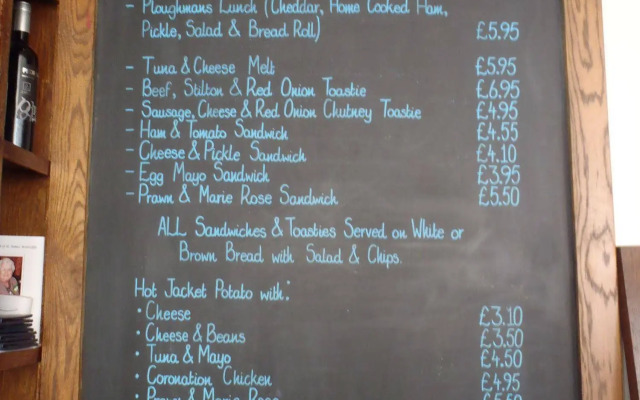 - Ploughmans Lunch (Cheddar, Home Cooked Ham,
Pickle, Salad & Bread Roll) £5.95
- Tuna & Cheese Melt £5.95
- Beef, Stilton & Red Onion Toastie £6.95
- Sausage, Cheese & Red Onion Chutney Toastie £4.95
- Ham & Tomato Sandwich £4.55
- Cheese & Pickle Sandwich £4.10
- Egg Mayo Sandwich £3.95
- Prawn & Marie Rose Sandwich £5.50
ALL Sandwiches & Toasties Served on White or
Brown Bread with Salad & Chips.
Hot Jacket Potato with:
• Cheese £3.10
• Cheese & Beans £3.50
• Tuna & Mayo £4.50
• Coronation Chicken £4.95
• Prawn & Marie Rose £5.50